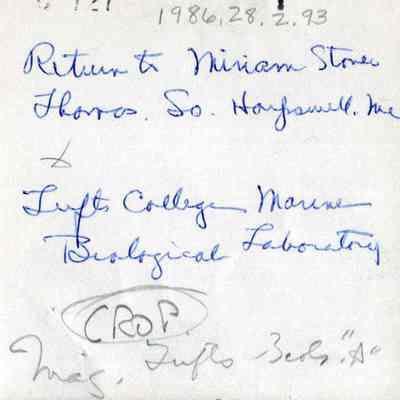 1986.28.2.93
Return to Miriam Stover
Thomas. So. Harpswell. Me
x
Tufts College Marine
Biological Laboratory
CROP
Mag. Tufts Biol. "A"